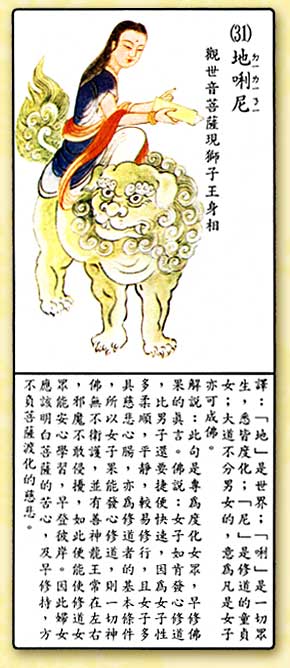 (31)地唎尼
觀世音菩薩現獅子王身相
譯：「地」是世界；「唎」是一切眾
生，悉皆度化；「尼」是修道的童貞
女；大道不分男女的，意為凡是女子
亦可成佛。
解說：此句是專為度化女眾，早修佛
果的真言。佛說：女子如肯發心修道
，比男子還要捷便快速，因為女子性
多柔順，平靜，較易修行，且女子多
具慈悲心腸，亦為修道者的基本條件
，所以女子果能發心修道，則一切神
佛無不衛護，並有善神龍王常在左右
，邪魔不敢侵擾，如此便能使修道女
眾能安心學習，早登彼岸。因此婦女
應該明白菩薩的苦心，及早修持，方
不負菩薩渡化的慈悲。